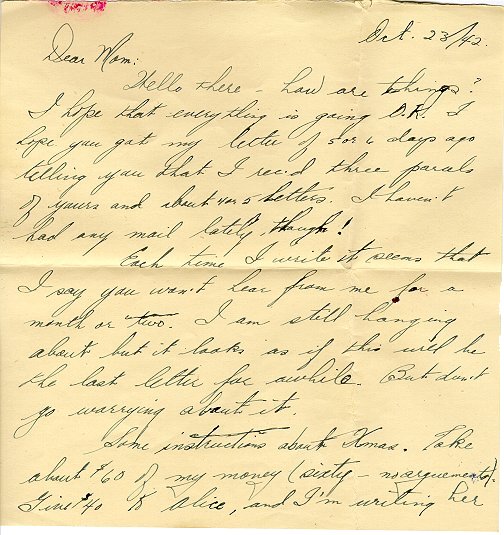 Oct. 23/42.
Dear Mom:
Hello there - how are things?
I hope that everything is going O.K. I
hope you got my letter of 5 or 6 days ago
telling you that I rec'd three parcels
of yours and about 4 or 5 letters. I haven't
had any mail lately, though!
Each time I write it seems that
I say you won't hear from me for a
month or two. I am still hanging
about but it looks as if this will be
the last letter for awhile. But don't
go worrying about it.
Some instructions about Xmas. Take
about $60 of my money (sixty - no arguements).
Give $40 to Alice, and I'm writing her